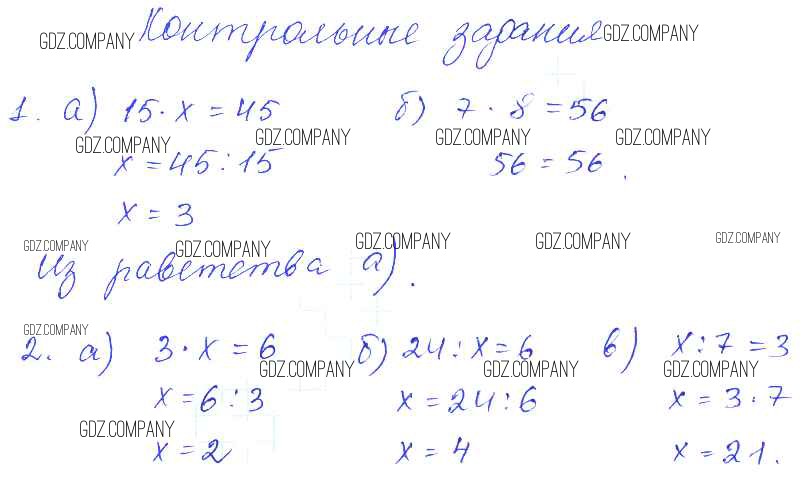 Контрольные задания
GDZ.COMPANY GDZ.COMPANY
1. а) 15 · x = 45 б) 7 · 8 = 56
GDZ.COMPANY GDZ.COMPANY GDZ.COMPANY GDZ.COMPANY
x = 45 : 15 56 = 56.
x = 3
GDZ.COMPANY GDZ.COMPANY GDZ.COMPANY GDZ.COMPANY GDZ.COMPANY
Из раветства а).
GDZ.COMPANY
2. а) 3 · x = 6 б) 24 : x = 6 в) x : 7 = 3
GDZ.COMPANY GDZ.COMPANY GDZ.COMPANY
x = 6 : 3 x = 24 : 6 x = 3 · 7
GDZ.COMPANY
x = 2 x = 4 x = 21.